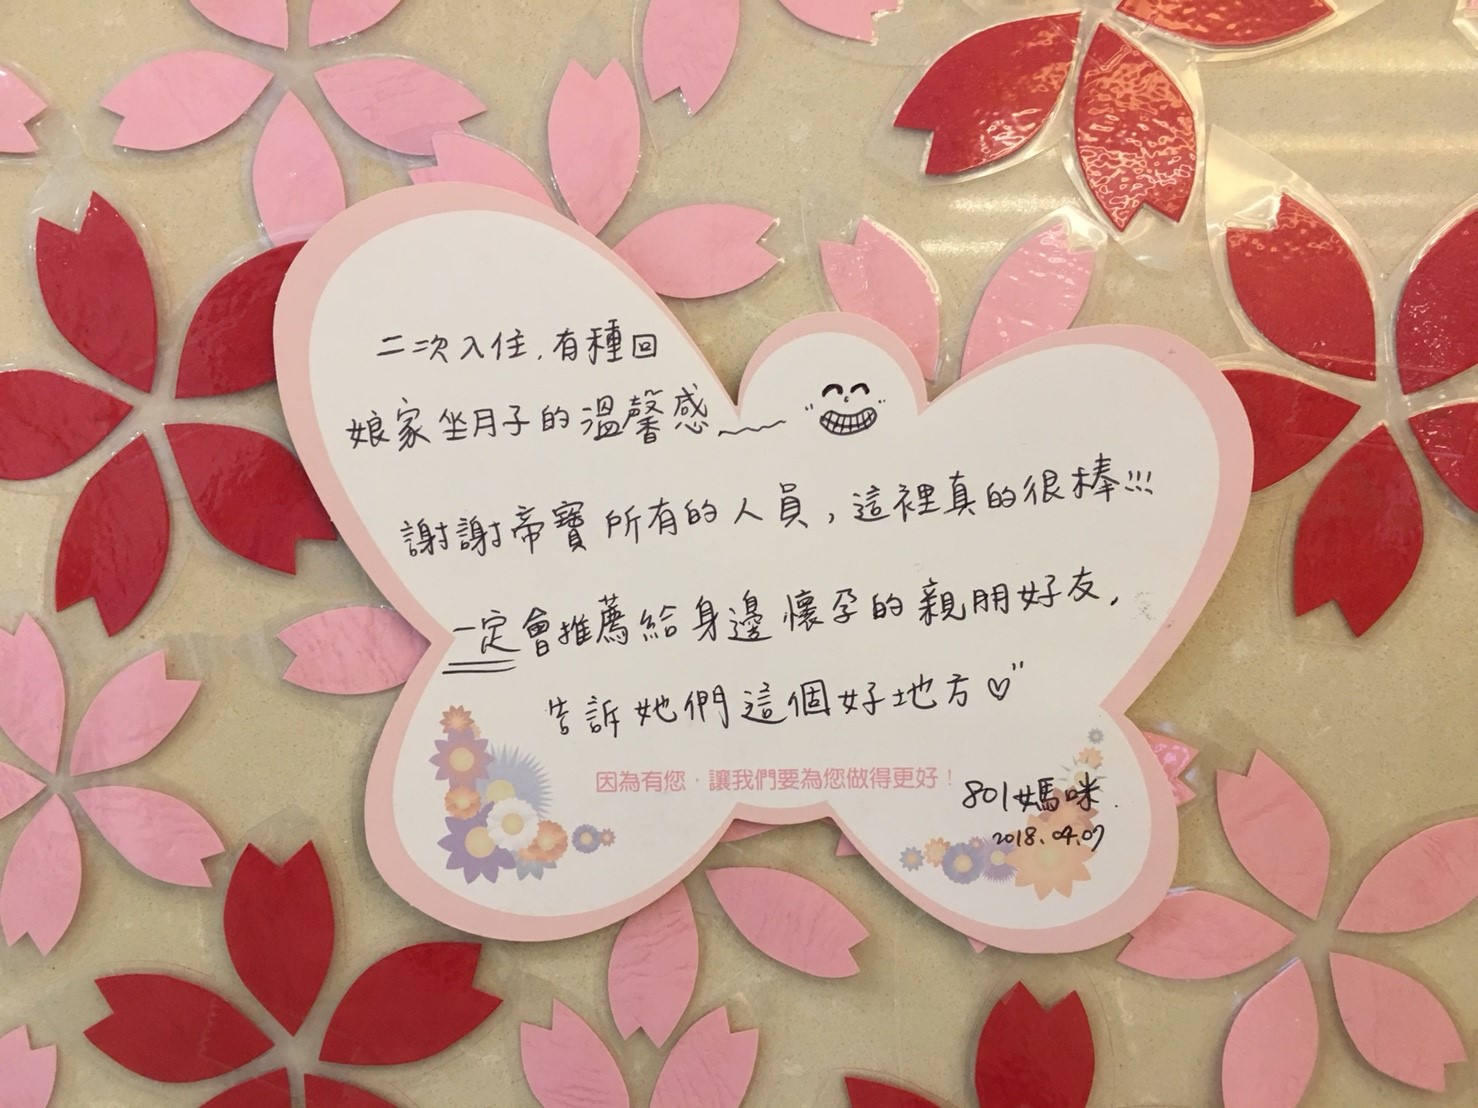 二次入住,有種回
娘家坐月子的溫馨感
謝謝帝寶所有的人員,這裡真的很棒!!!
一定會推薦給身邊懷孕的親朋好友,
告訴她們這個好地方♡"
因為有您,讓我們要為您做得更好!
801媽咪.
2018.04.07